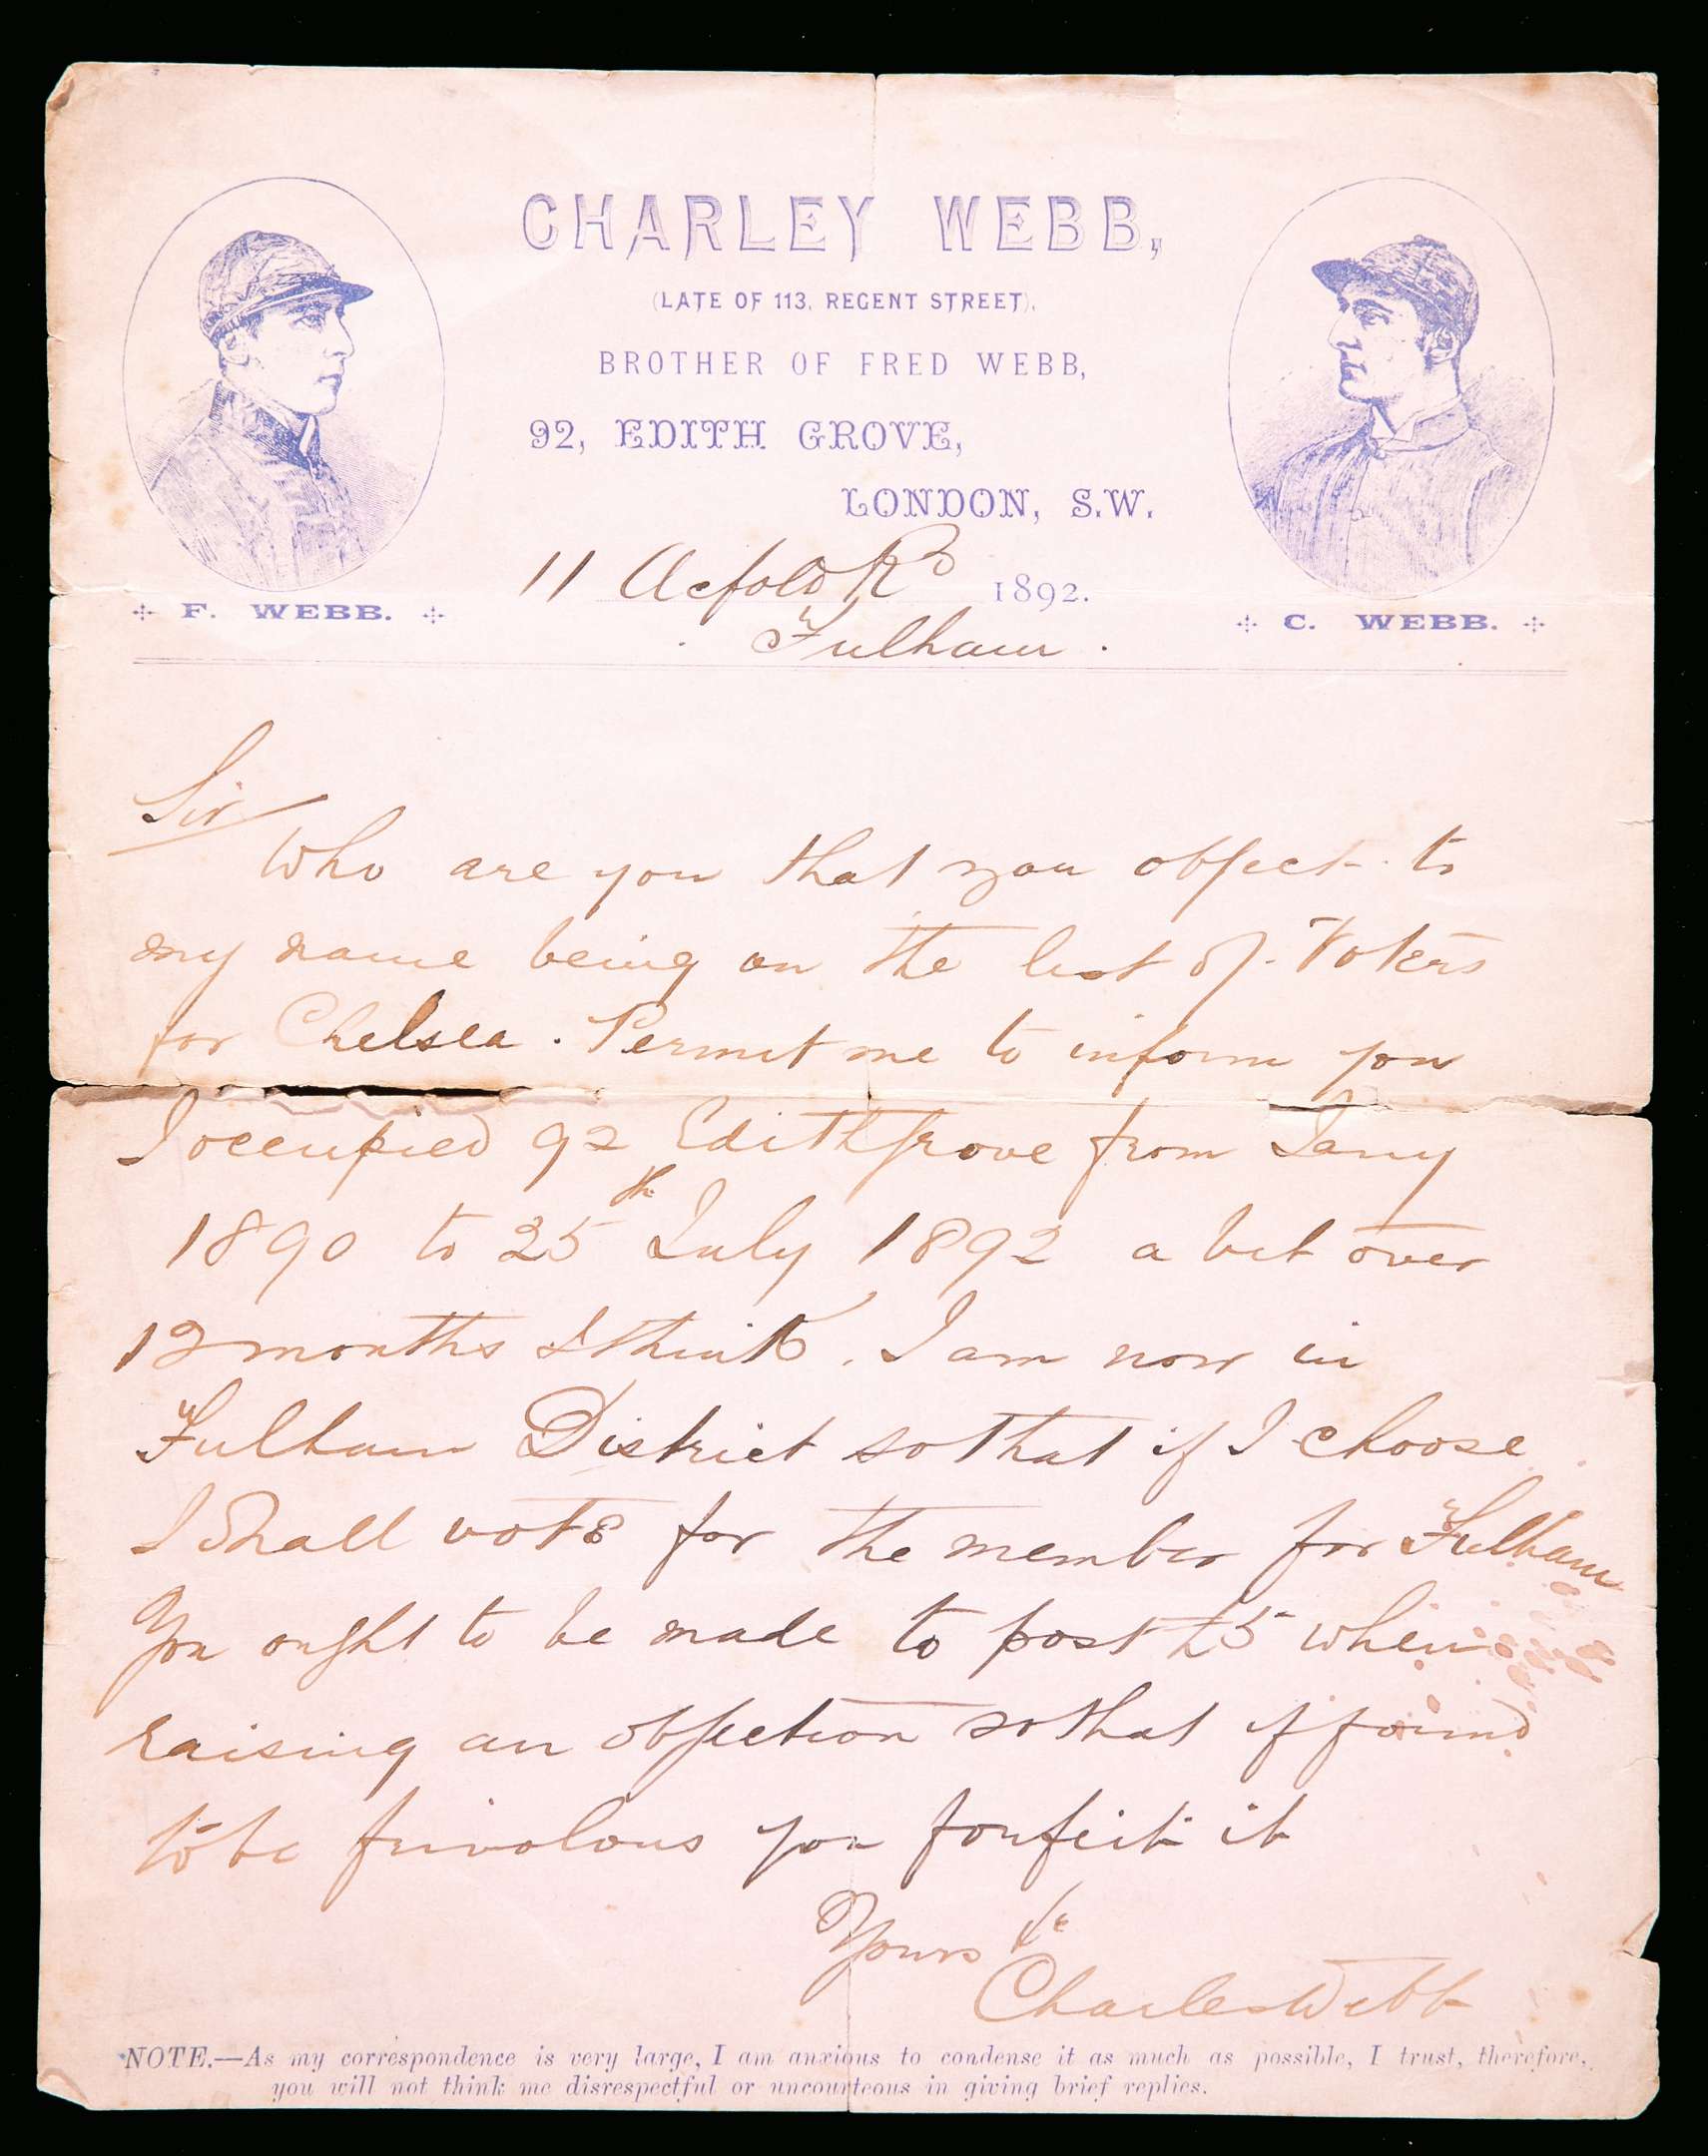 CHARLEY WEBB,
(LATE OF 113, REGENT STREET),
BROTHER OF FRED WEBB,
92, EDITH GROVE,
LONDON, S.W.
11 Acfold Rd 1892.
Fulham.
F. WEBB.
C. WEBB.
Sir
Who are you that you object to
my name being on the list of Voters
for Chelsea. Permit me to inform you
I occupied 92 Edith Grove from Jany
1890 to 25th July 1892 a bit over
12 months I think. I am now in
Fulham District so that if I choose
I shall vote for the member for Fulham
You ought to be made to post £5 when
raising an objection so that if found
to be frivolous you forfeit it
Yours &c
Charles Webb
NOTE.—As my correspondence is very large, I am anxious to condense it as much as possible, I trust, therefore,
you will not think me disrespectful or uncourteous in giving brief replies.